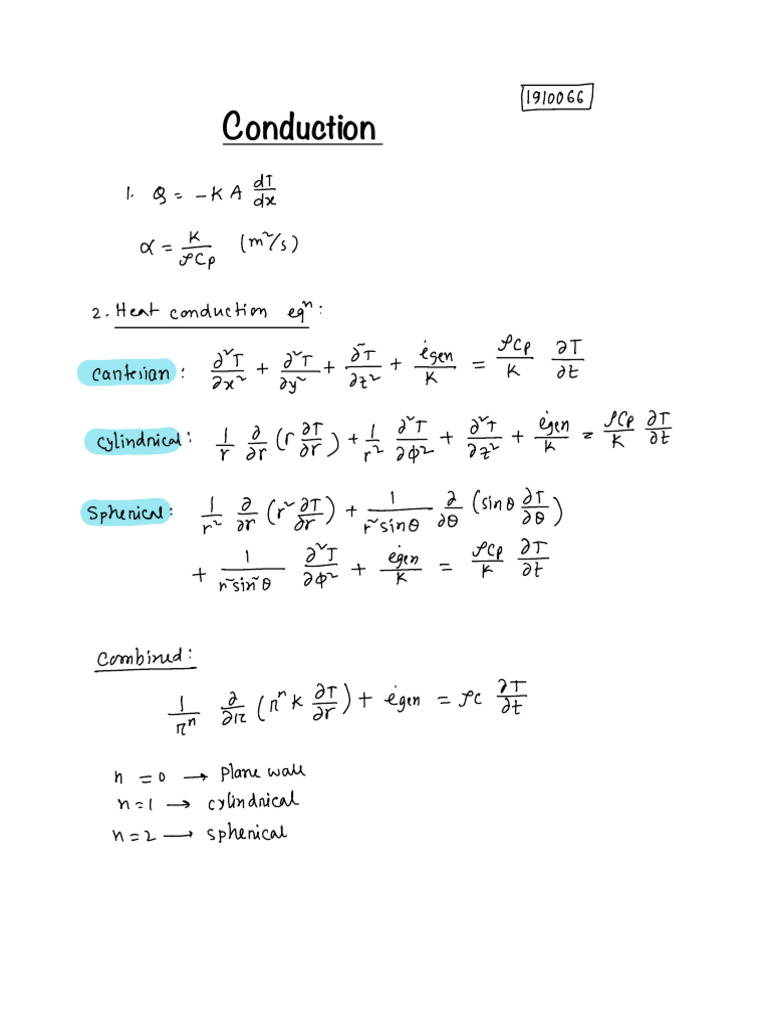 1910066
Conduction
1. Q = -KA dT/dx
α = K/ρCp (m²/s)
2. Heat conduction eqⁿ:
Cartesian: ∂²T/∂x² + ∂²T/∂y² + ∂²T/∂z² + ėgen/K = ρCp/K ∂T/∂t
Cylindrical: 1/r ∂/∂r (r ∂T/∂r) + 1/r² ∂²T/∂φ² + ∂²T/∂z² + ėgen/K = ρCp/K ∂T/∂t
Spherical: 1/r² ∂/∂r (r² ∂T/∂r) + 1/(r² sinθ) ∂/∂θ (sinθ ∂T/∂θ)
+ 1/(r² sin²θ) ∂²T/∂φ² + ėgen/K = ρCp/K ∂T/∂t
Combined:
1/rⁿ ∂/∂r (rⁿ K ∂T/∂r) + ėgen = ρC ∂T/∂t
n = 0 → Plane wall
n = 1 → cylindrical
n = 2 → spherical